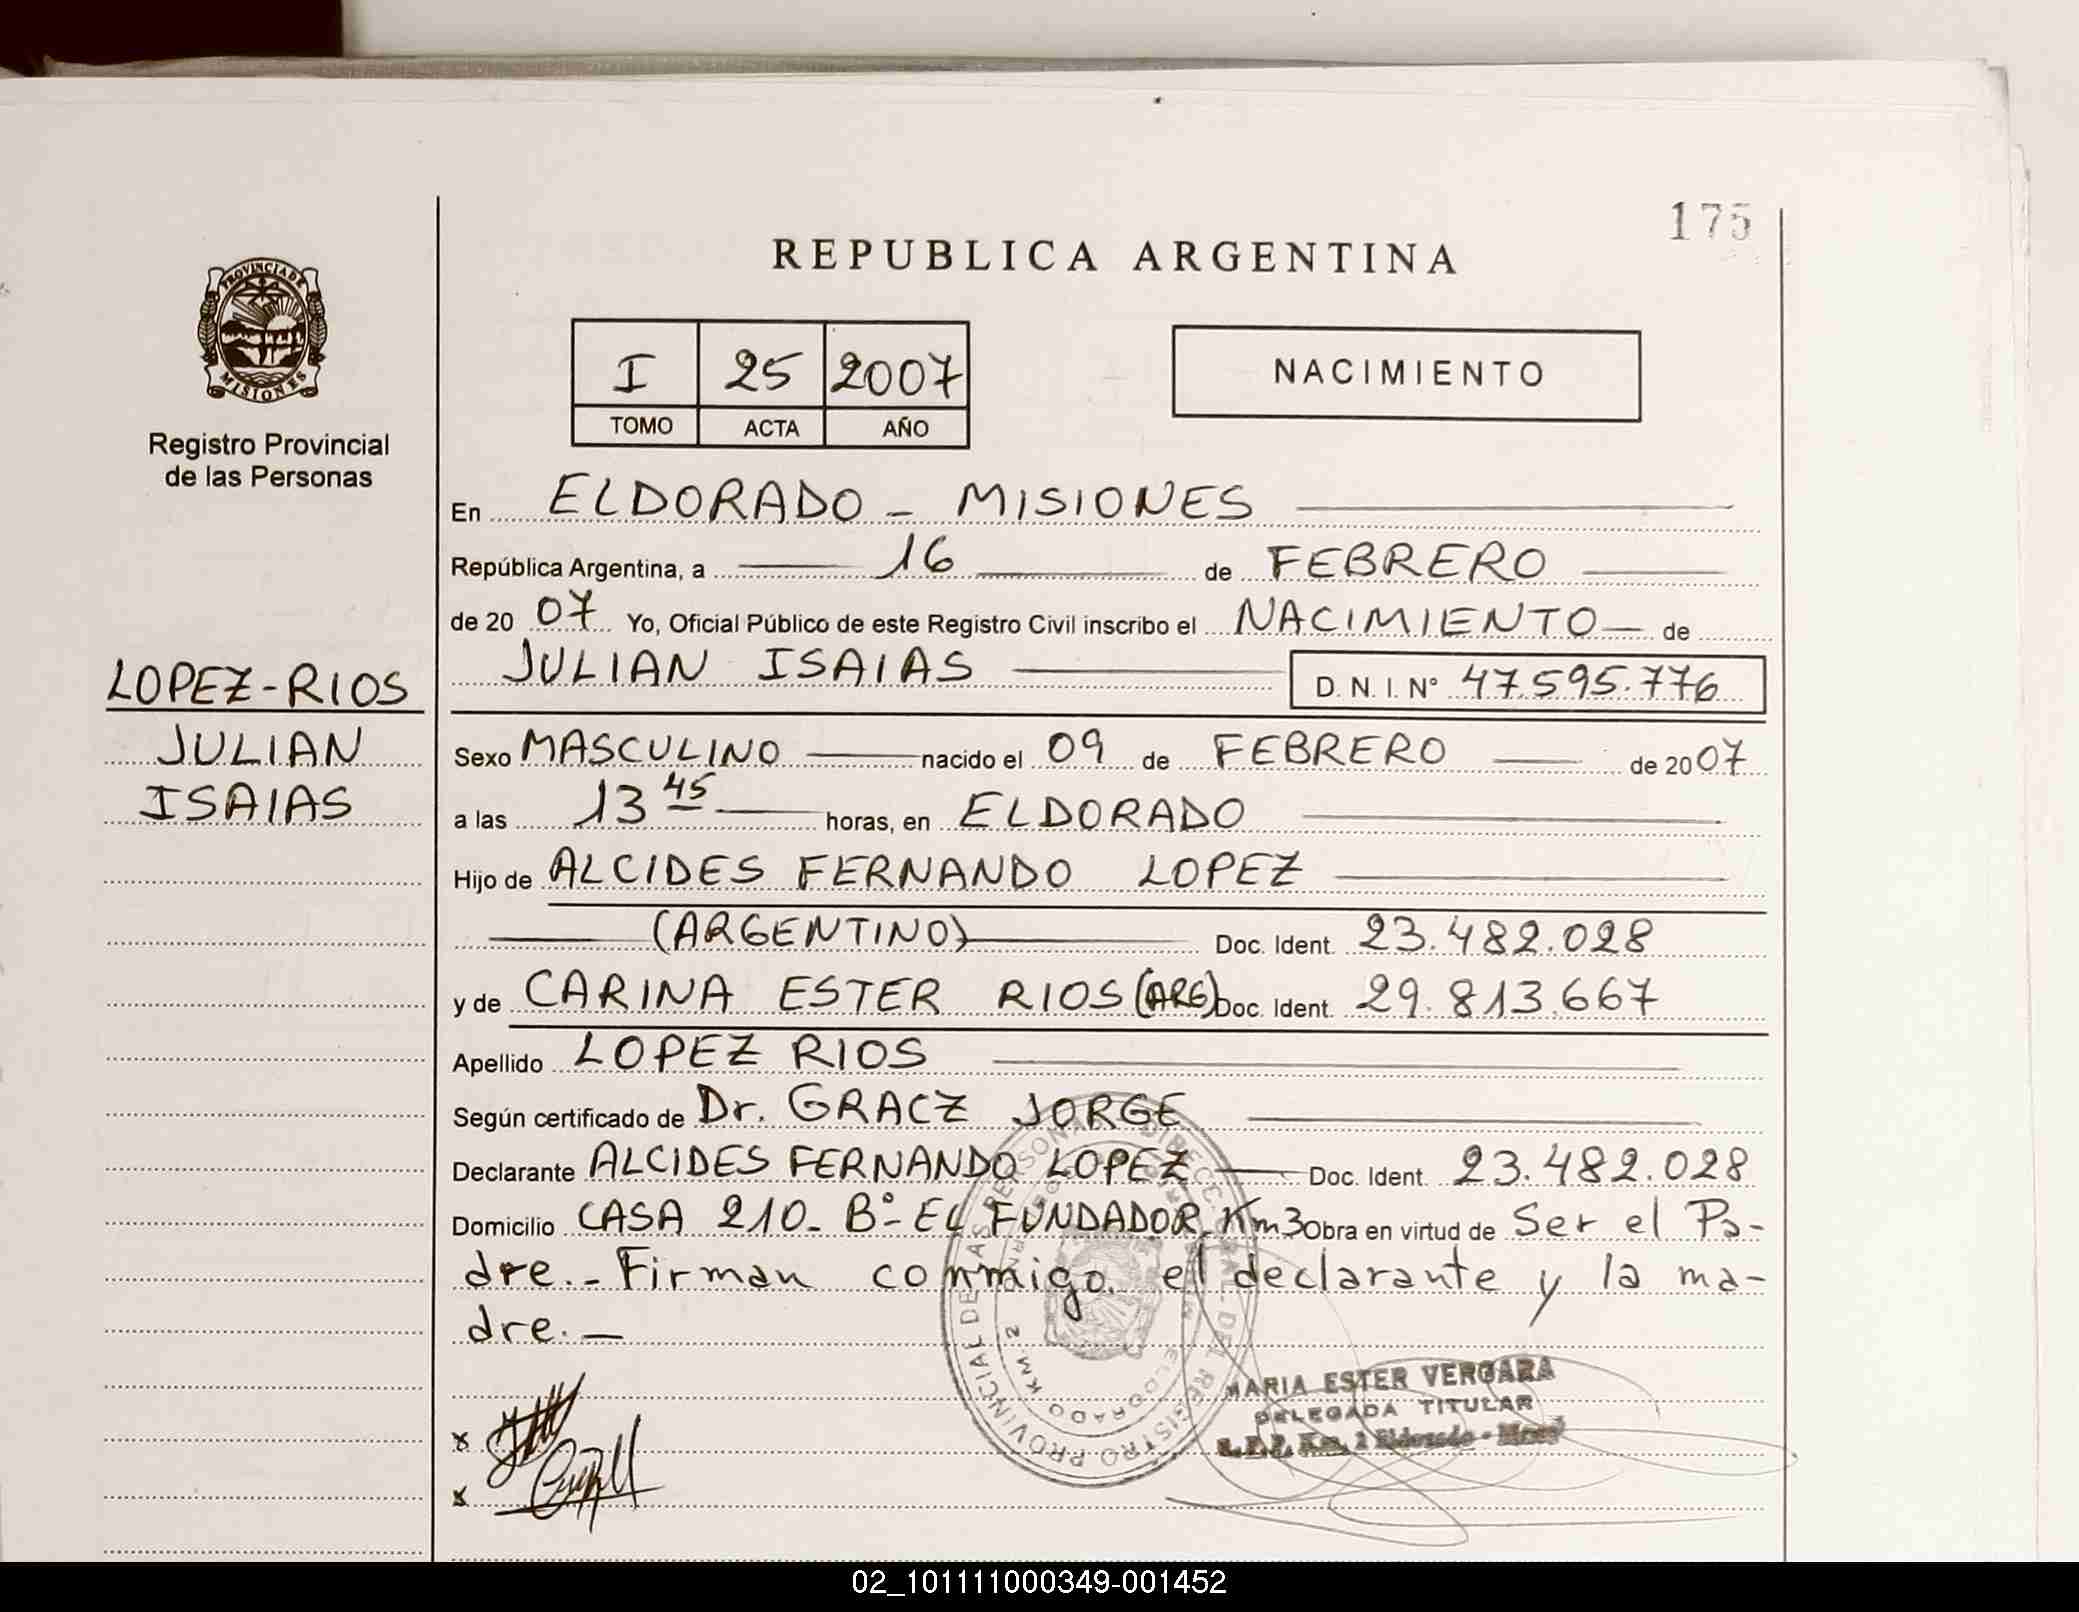 175
REPUBLICA ARGENTINA
PROVINCIA DE
MISIONES
Registro Provincial
de las Personas
I 25 2007
TOMO ACTA AÑO
NACIMIENTO
En ELDORADO - MISIONES
República Argentina, a 16 de FEBRERO
de 20 07 Yo, Oficial Público de este Registro Civil inscribo el NACIMIENTO de
JULIAN ISAIAS D. N. I. N° 47.595.776
LOPEZ-RIOS
JULIAN
ISAIAS
Sexo MASCULINO nacido el 09 de FEBRERO de 20 07
a las 13 45 horas, en ELDORADO
Hijo de ALCIDES FERNANDO LOPEZ
(ARGENTINO) Doc. Ident. 23.482.028
y de CARINA ESTER RIOS (ARG) Doc. Ident. 29.813.667
Apellido LOPEZ RIOS
Según certificado de Dr. GRACZ JORGE
Declarante ALCIDES FERNANDO LOPEZ Doc. Ident. 23.482.028
Domicilio CASA 210- B°- EL FUNDADOR Km3 Obra en virtud de Ser el Pa-
dre.- Firman conmigo el declarante y la ma-
dre.-
REGISTRO PROVINCIAL DE LAS PERSONAS
ELDORADO KM. 2
MARIA ESTER VERGARA
DELEGADA TITULAR
R.P.P. Km. 2 Eldorado -
x
x
02_101111000349-001452